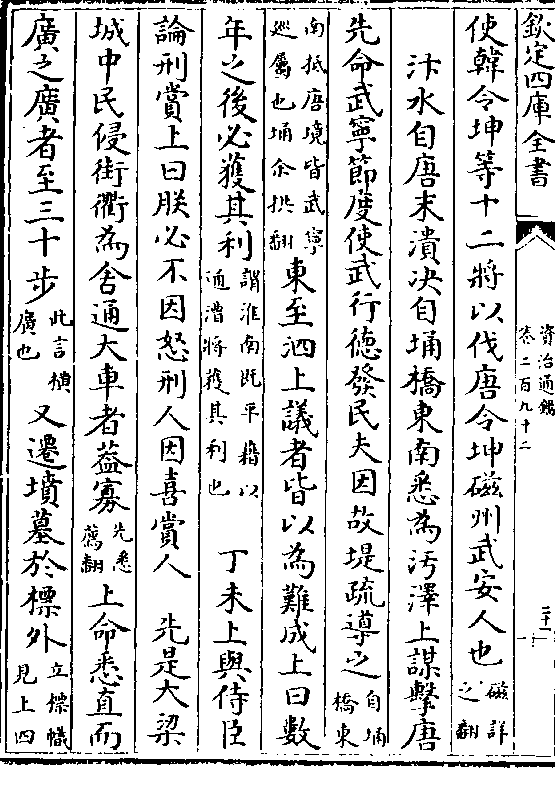 欽定四庫全書
資治通鑑
卷二百九十二
三十一
使韓令坤等十二將以伐唐令坤磁州武安人也磁詳之翻
汴水自唐末潰決自埇橋東南悉為汚澤上謀擊唐
先命武寧節度使武行德發民夫因故堤疏導之自埇橋東
南抵唐境皆武寧廵屬也埇余拱翻東至泗上議者皆以為難成上曰數
年之後必獲其利謂淮南既平藉以通漕將獲其利也丁未上與侍臣
論刑賞上曰朕必不因怒刑人因喜賞人 先是大梁
城中民侵街衢為舍通大車者葢寡先悉薦翻上命悉直而
廣之廣者至三十步此言横廣也又遷墳墓於標外立標幟見上四